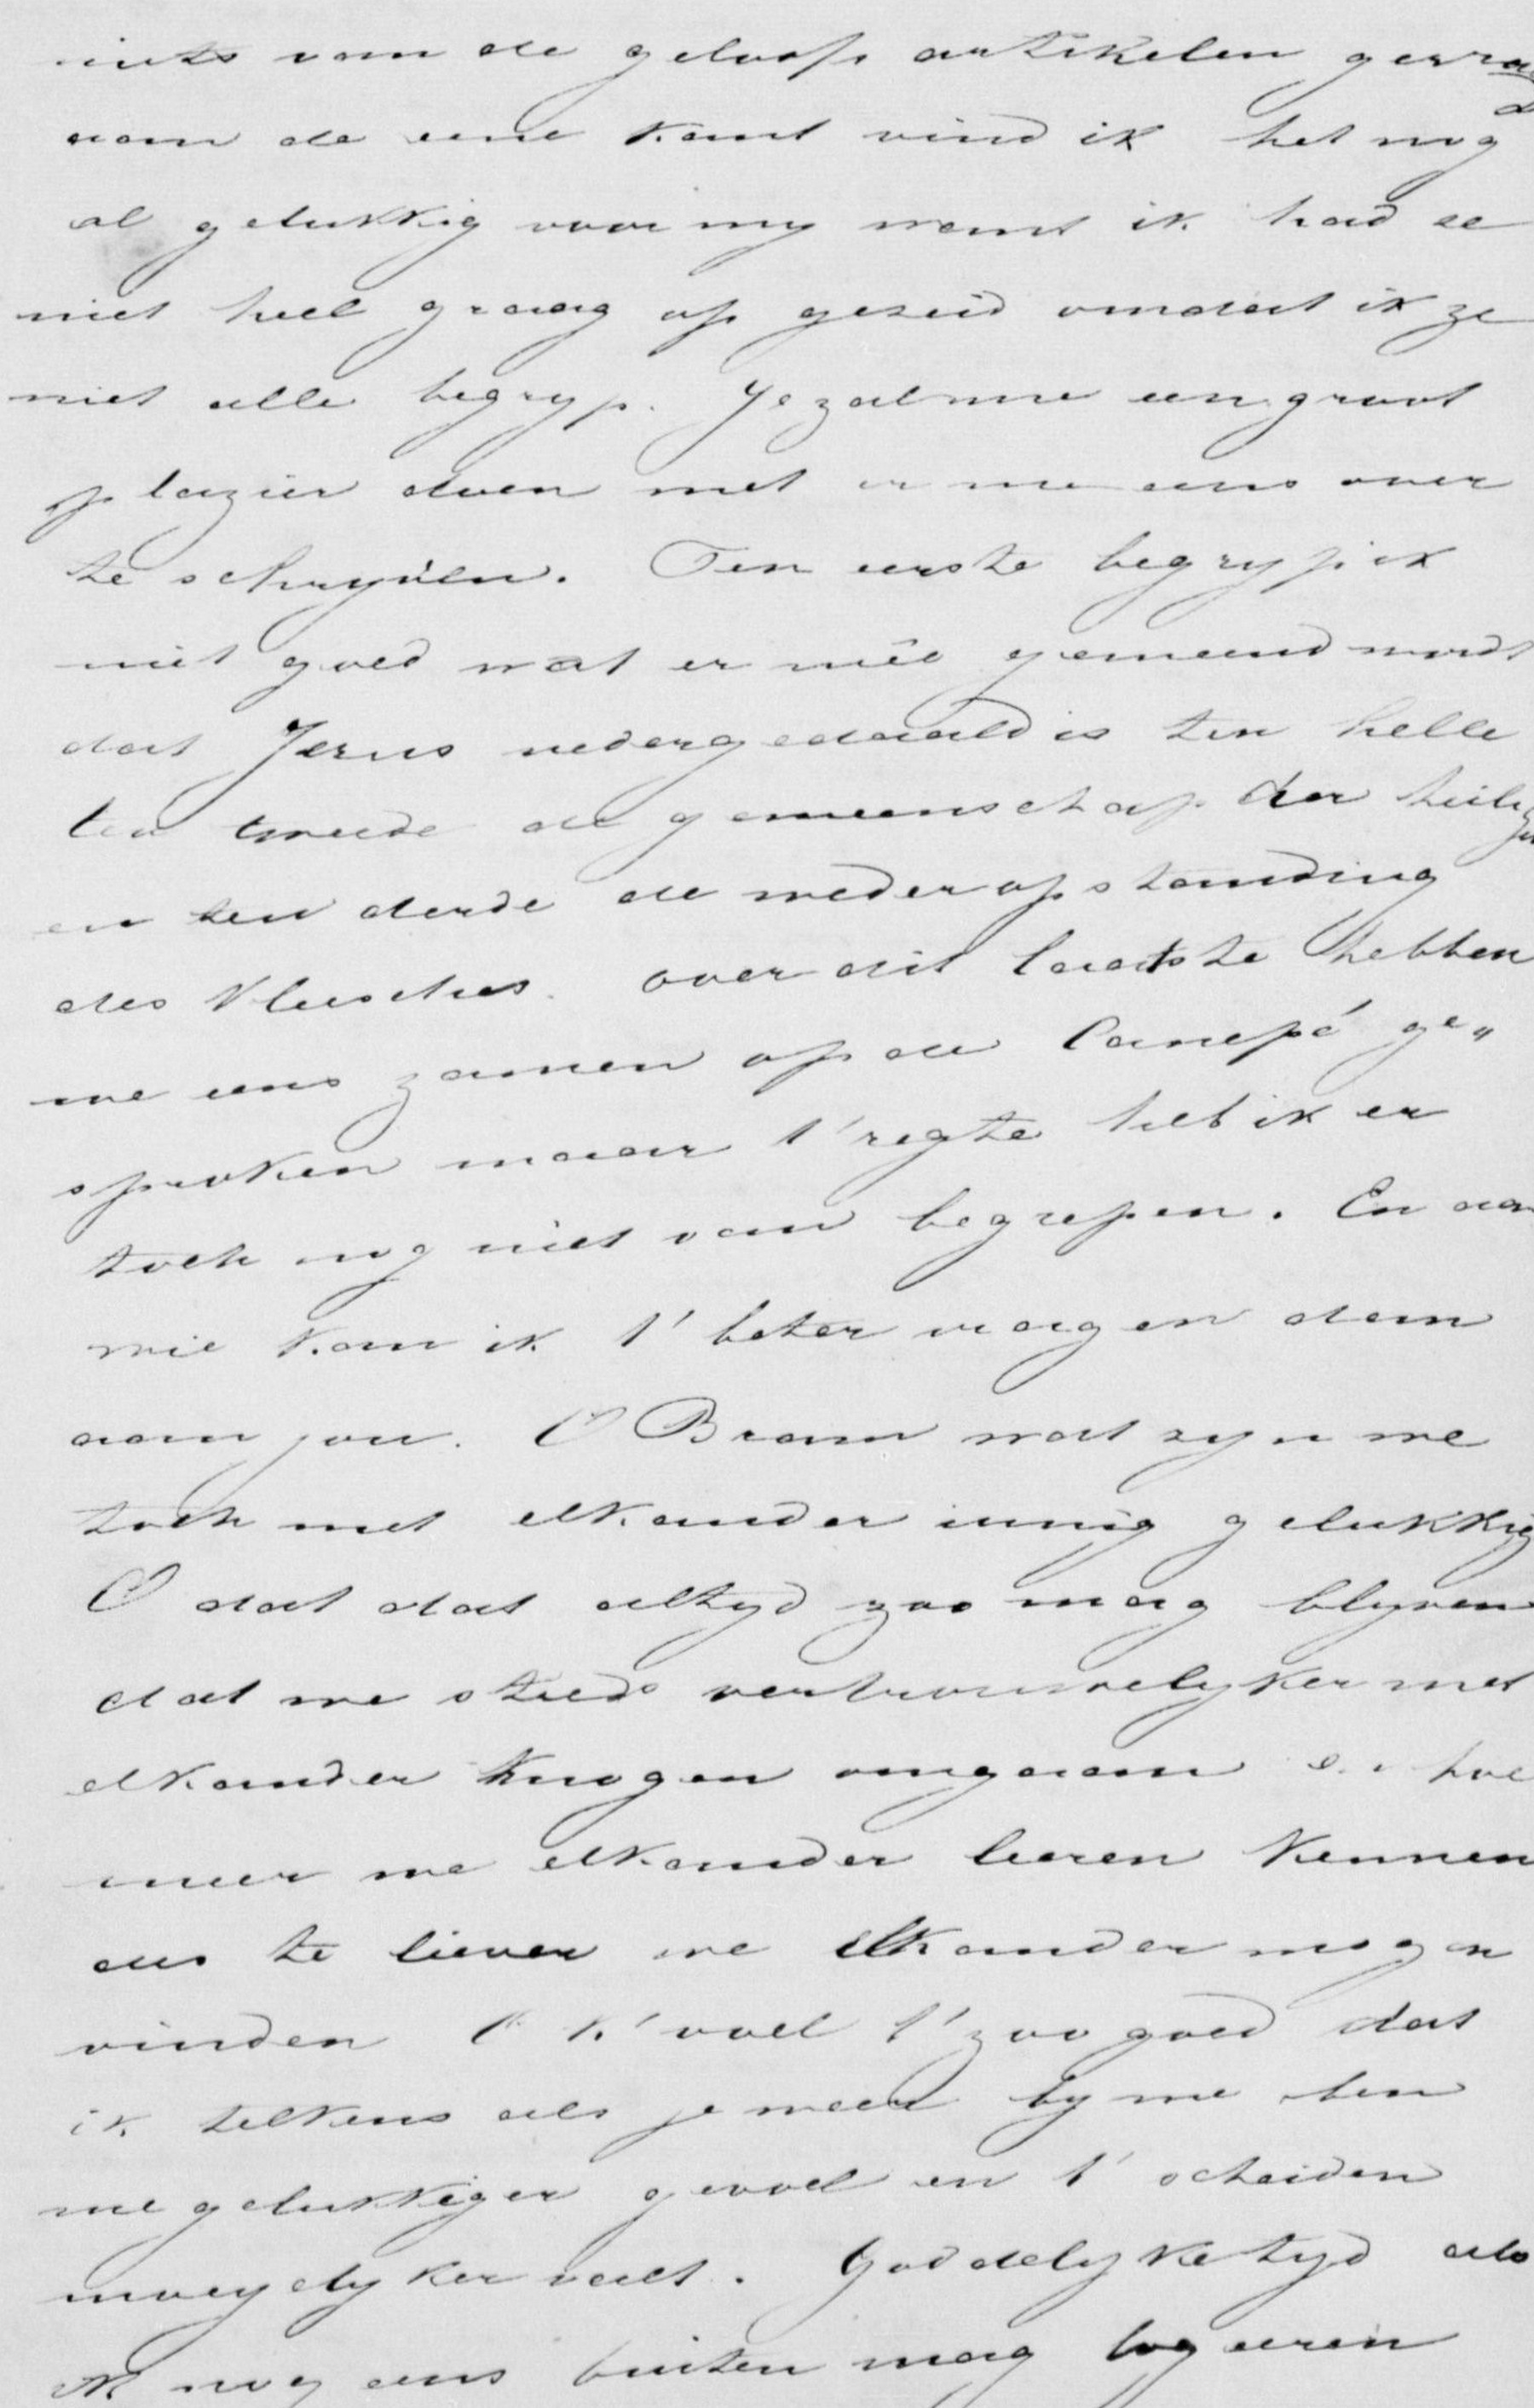 iets van de geloofs artikelen gevraagd
aan de eene kant vind ik het nog
al gelukkig voor my want ik had ze
niet heel graag op gezeid omdat ik ze
niet alle begryp. Je zal me een groot
plazier doen met er me eens over
te schryven. Ten eerste begryp ik
niet goed wat er meê gemeend wordt
dat Jezus nedergedaald is ten helle
ten tweede de gemeenschap der heiligen
en ten derde de wederopstanding
des vleesches. over dit laatste hebben
we eens zamen op de Canepé ge„
sproken maar t' regte heb ik er
toch nog niet van begrepen. En aan
wie kan ik t' beter vragen dan
aan jou. O Bram wat zyn we
toch met elkander innig gelukkig
O dat dat altyd zoo mag blyven
dat we steeds vertrouwelyker met
elkander mogen omgaan en hoe
meer we elkander leeren kennen
des te liever we elkander mogen
vinden O k' voel t' zoo goed dat
ik telkens als je meer by me ben
me gelukkiger gevoel en t' scheiden
moeyelyker valt. Goddelyke tyd als
ik nog eens buiten mag logeeren